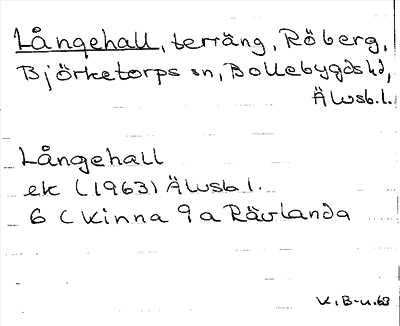 Långehall, terräng, Röberg,
Björketorps sn, Bollebygds hd,
Älvsb.l.
Långehall
ek (1963) Älvsb l.
6 C Kinna 9 a Rävlanda
K.B-u.68